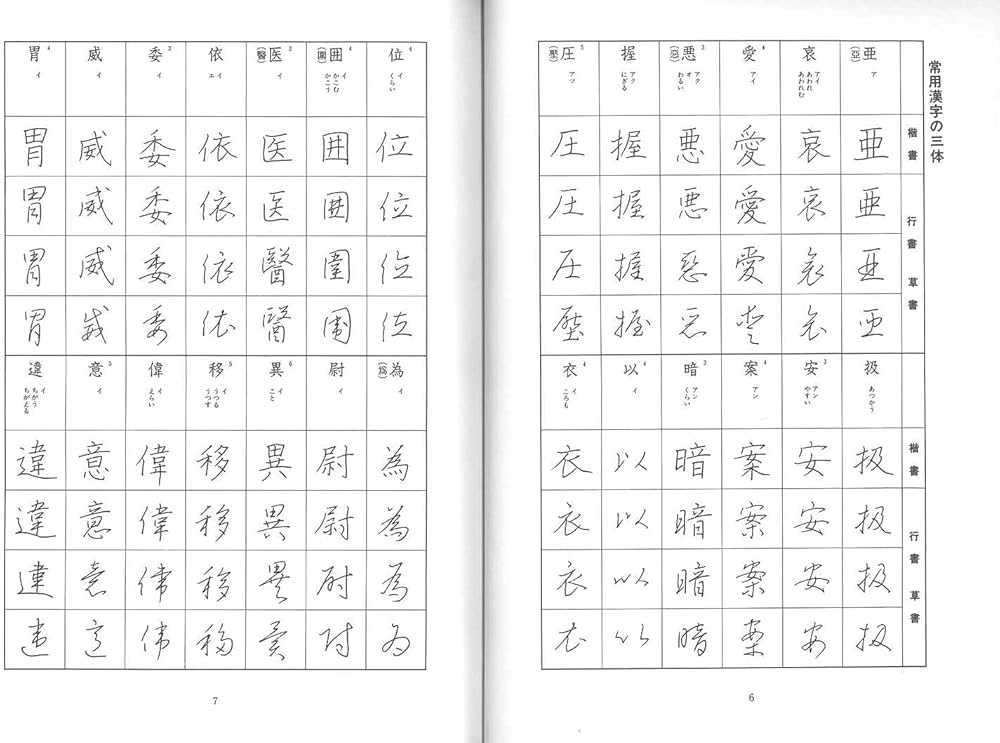 常用漢字の三体
亜(亞) ア
哀 アイ あわれ あわれむ
愛4 アイ
悪(惡)3 アク オ わるい
握 アク にぎる
圧(壓)5 アツ
楷書
亜 哀 愛 悪 握 圧
行書 草書
亜 哀 愛 悪 握 圧
亜 哀 愛 惡 握 圧
亜 哀 愛 悪 握 壓
扱 あつかう
安3 アン やすい
案4 アン
暗3 アン くらい
以4 イ
衣4 イ ころも
楷書
扱 安 案 暗 以 衣
行書 草書
扱 安 案 暗 以 衣
扱 安 案 暗 以 衣
扱 安 案 暗 以 衣
6
位4 イ くらい
囲(圍)4 イ かこむ かこう
医(醫)3 イ
依 イ エ
委3 イ
威 イ
胃4 イ
位 囲 医 依 委 威 胃
位 囲 医 依 委 威 胃
位 圍 醫 依 委 威 胃
位 圍 醫 依 委 威 胃
為(爲) イ
尉 イ
異6 イ こと
移5 イ うつる うつす
偉 イ えらい
意3 イ
違 イ ちがう ちがえる
為 尉 異 移 偉 意 違
為 尉 異 移 偉 意 違
為 尉 異 移 偉 意 違
為 尉 異 移 偉 意 違
7